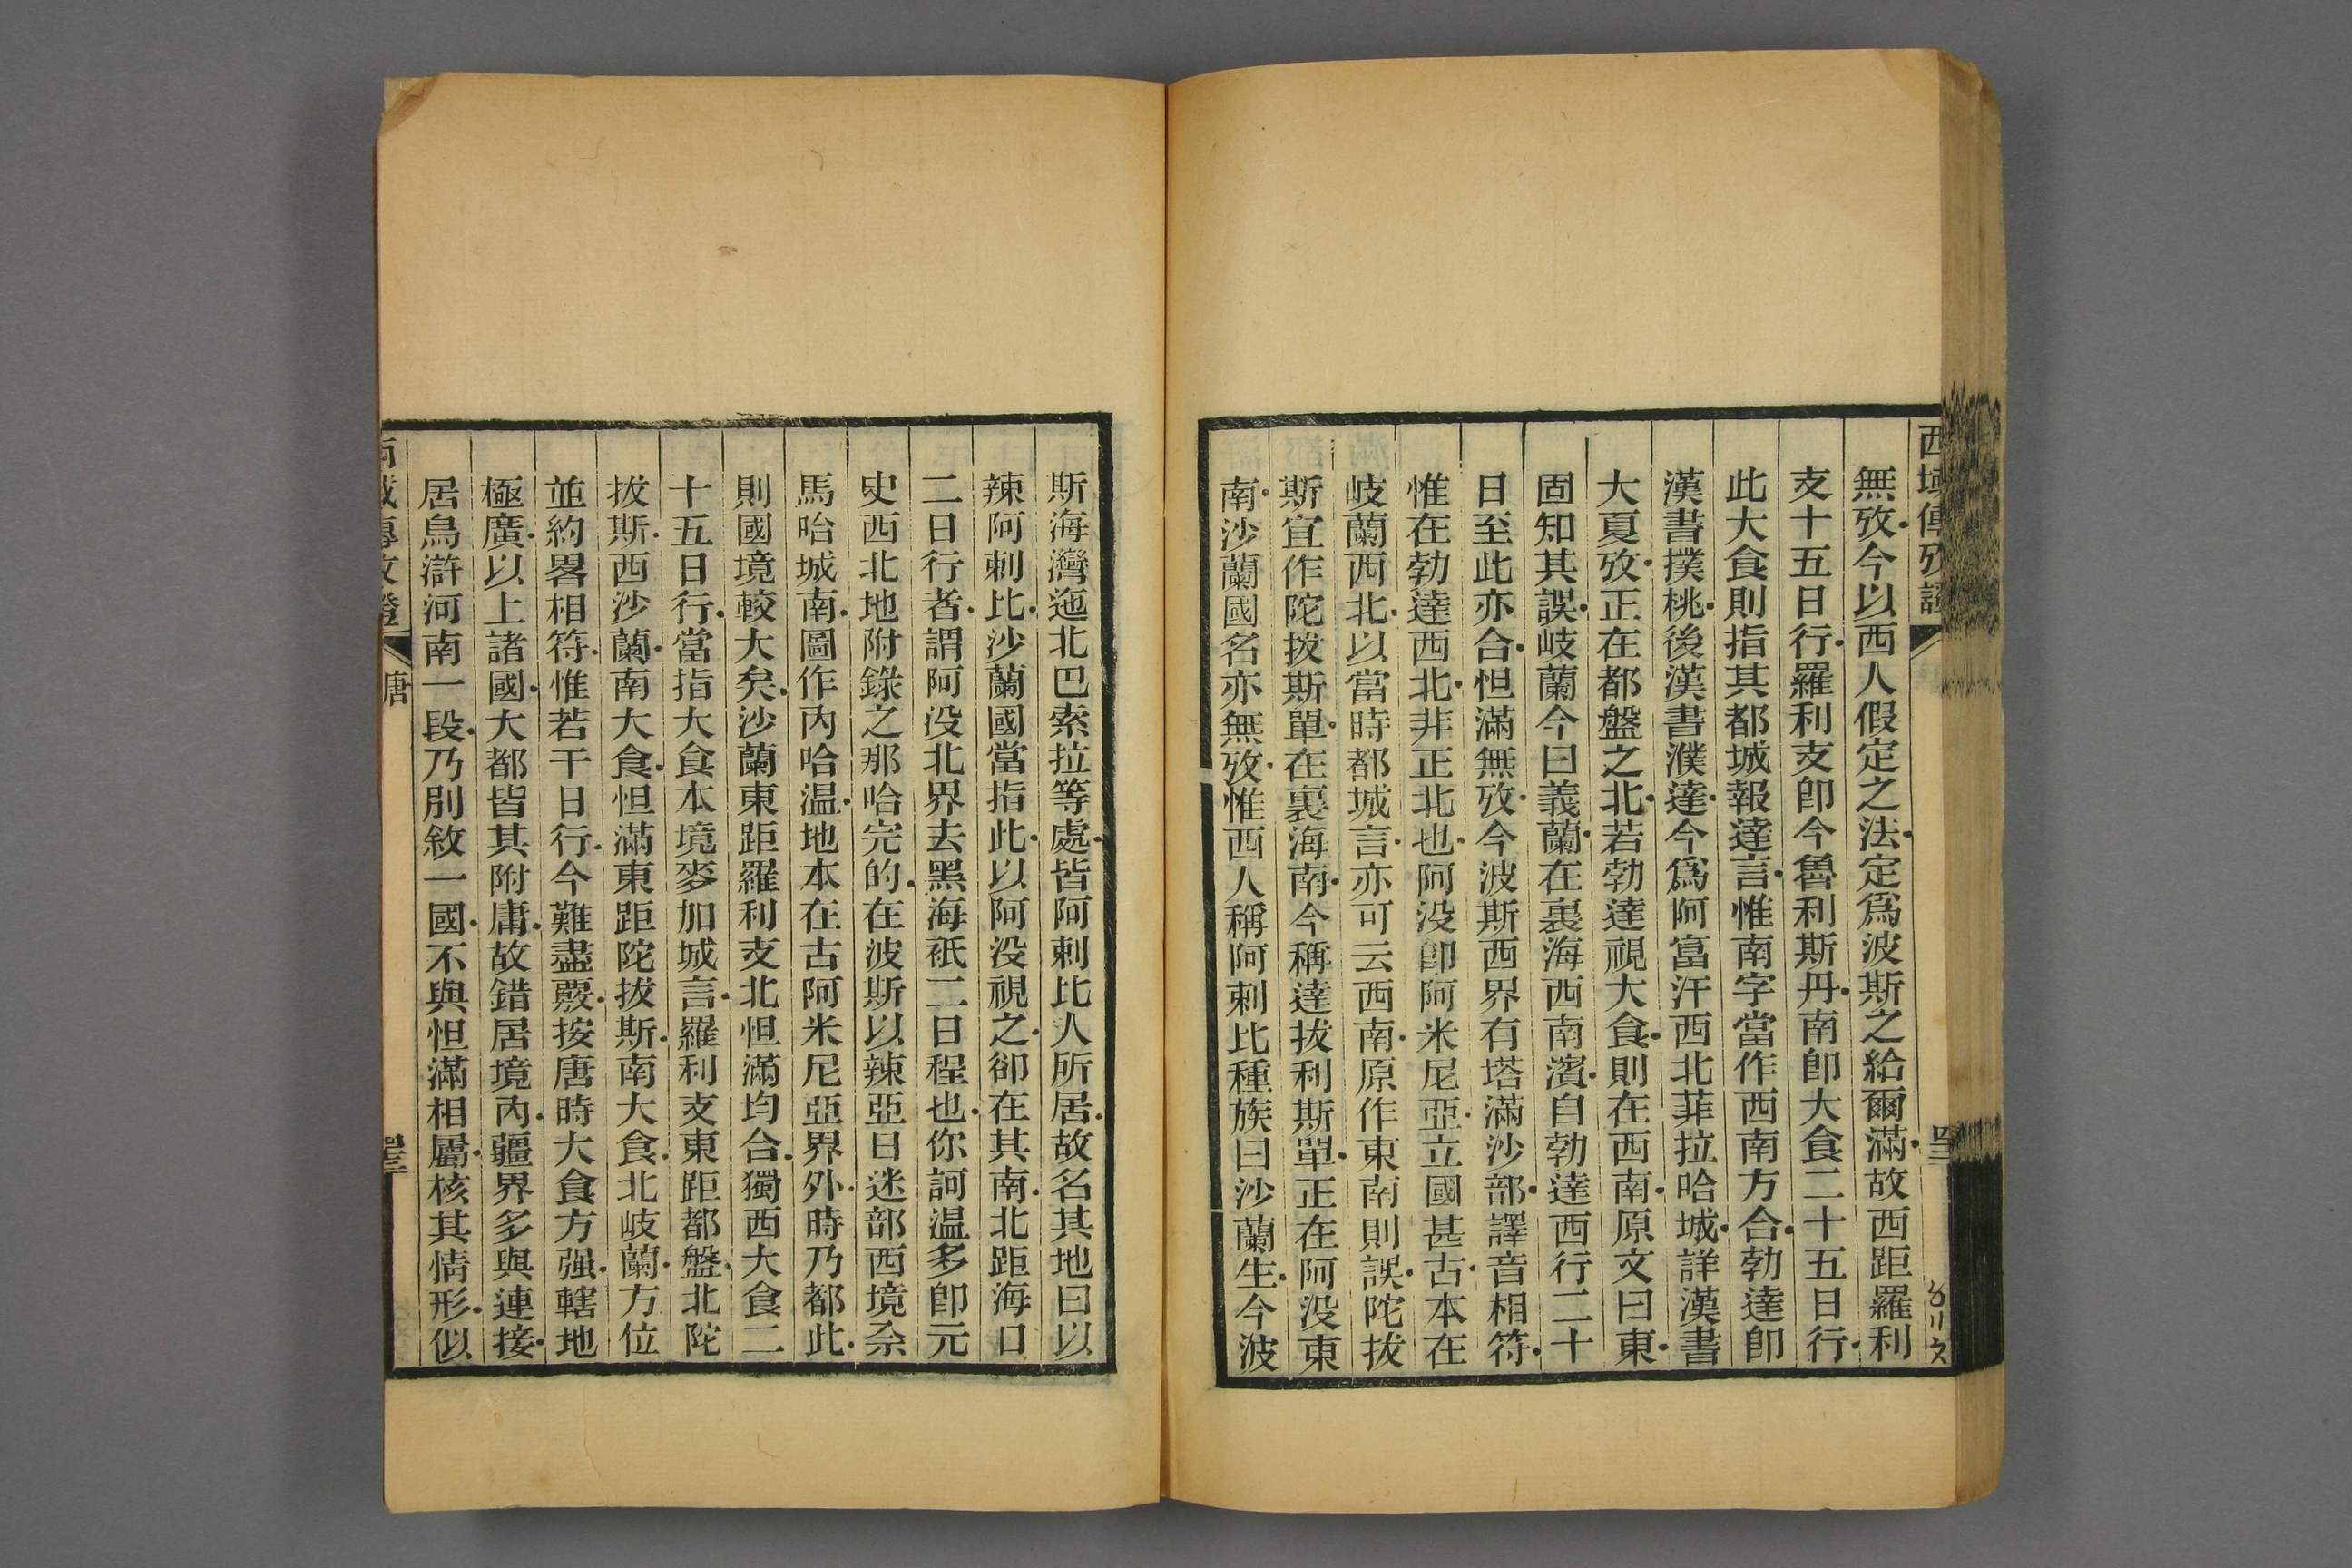 西域傳攷證
無攷今以西人假定之法定爲波斯之給爾滿故西距羅利
支十五日行羅利支卽今魯利斯丹南卽大食二十五日行
此大食則指其都城報達言惟南字當作西南方合勃達卽
漢書撲桃後漢書濮達今爲阿富汗西北菲拉哈城詳漢書
大夏攷正在都盤之北若勃達視大食則在西南原文曰東
固知其誤岐蘭今曰義蘭在裏海西南濱自勃達西行二十
日至此亦合怛滿無攷今波斯西界有塔滿沙部譯音相符
惟在勃達西北非正北也阿没卽阿米尼亞立國甚古本在
岐蘭西北以當時都城言亦可云西南原作東南則誤陀拔
斯宜作陀拔斯單在裏海南今稱達拔利斯單正在阿没東
南沙蘭國名亦無攷惟西人稱阿剌比種族曰沙蘭生今波
斯海灣迤北巴索拉等處皆阿剌比人所居故名其地曰以
辣阿剌比沙蘭國當指此以阿没視之卻在其南北距海口
二日行者謂阿没北界去黑海祇二日程也你訶温多卽元
史西北地附錄之那哈完的在波斯以辣亞日迷部西境糸
馬哈城南圖作內哈温地本在古阿米尼亞界外時乃都此
則國境較大矣沙蘭東距羅利支北怛滿均合獨西大食二
十五日行當指大食本境麥加城言羅利支東距都盤北陀
拔斯西沙蘭南大食怛滿東距陀拔斯南大食北岐蘭方位
並約畧相符惟若干日行今難盡覈按唐時大食方强轄地
極廣以上諸國大都皆其附庸故錯居境內疆界多與連接
居烏滸河南一段乃別敘一國不與怛滿相屬核其情形似
唐